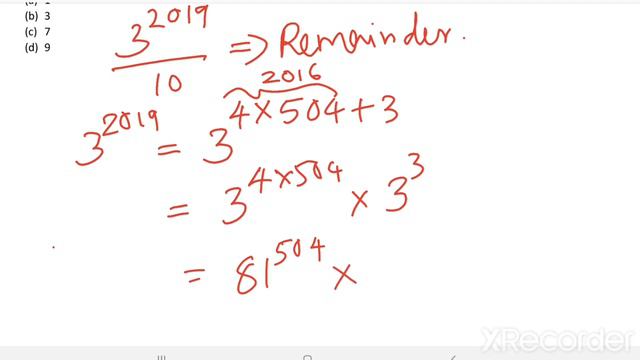 (b) 3
(c) 7
(d) 9
3^2019 / 10 => Remainder.
2016
3^2019 = 3^(4×504+3)
= 3^(4×504) × 3^3
= 81^504 ×
XRecorder